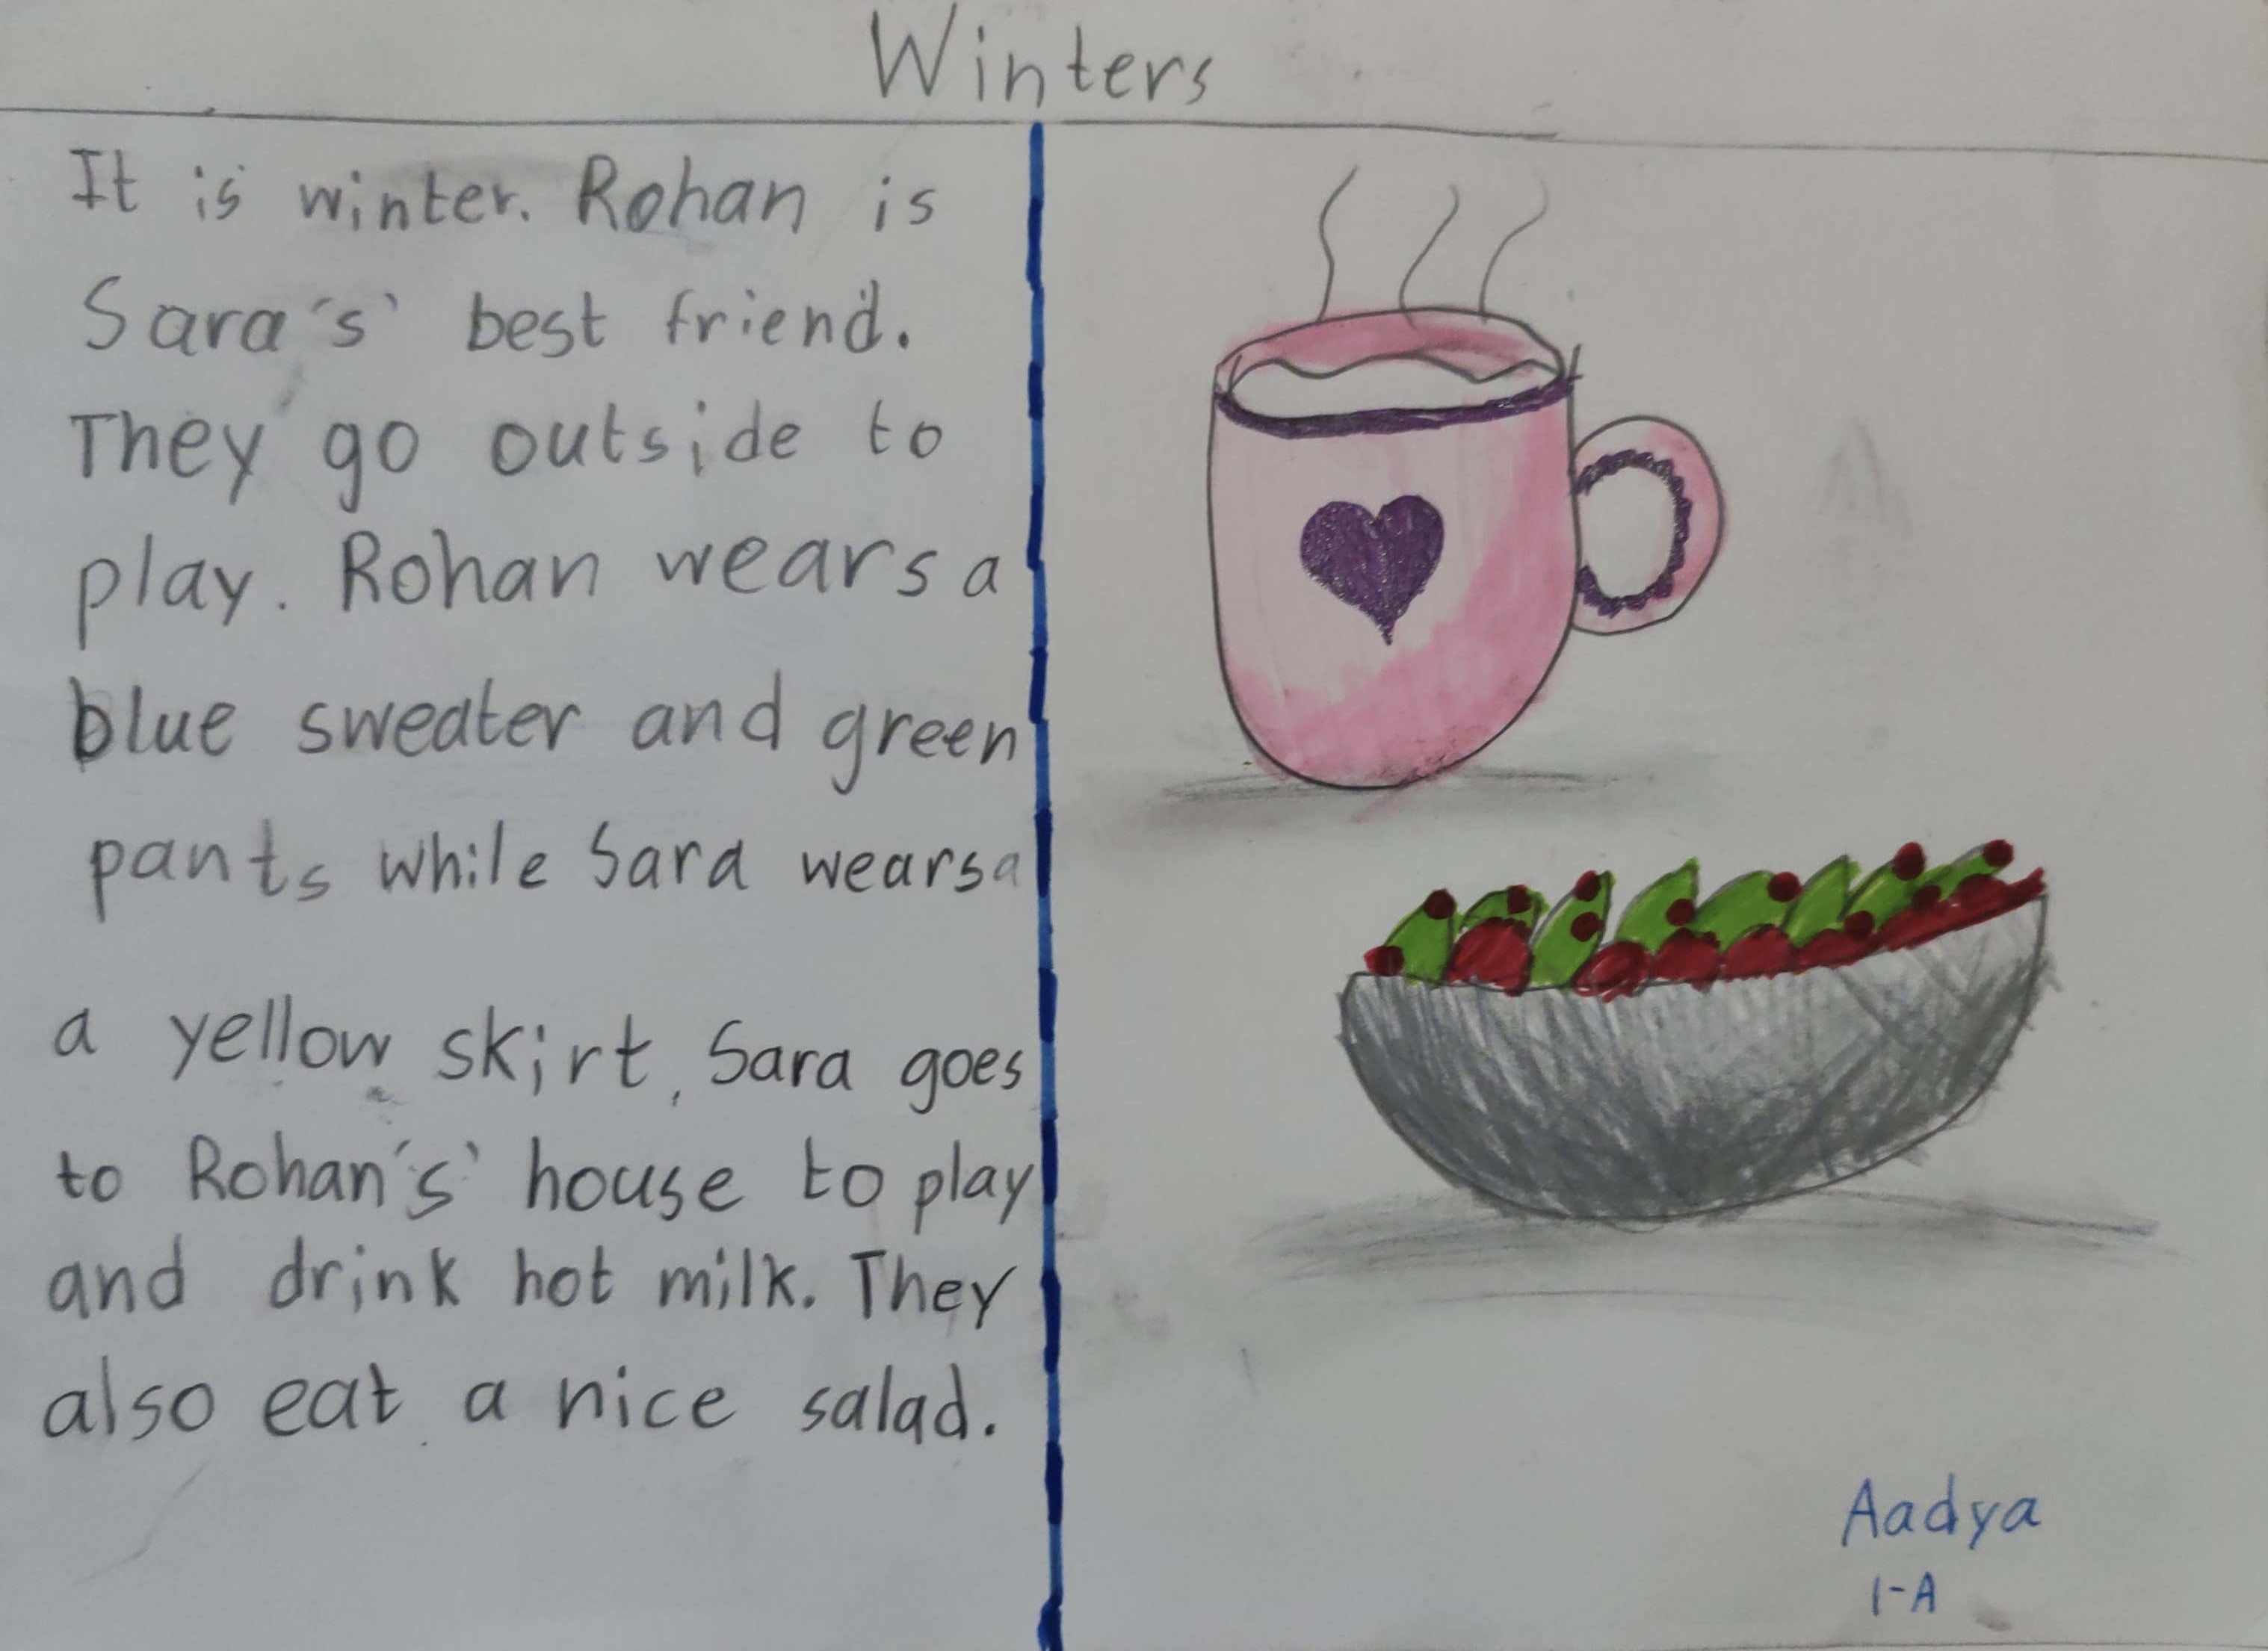 Winters
It is winter. Rohan is
Sara's' best friend.
They go outside to
play. Rohan wears a
blue sweater and green
pants while Sara wears a
a yellow skirt, Sara goes
to Rohan's' house to play
and drink hot milk. They
also eat a nice salad.
Aadya
1-A